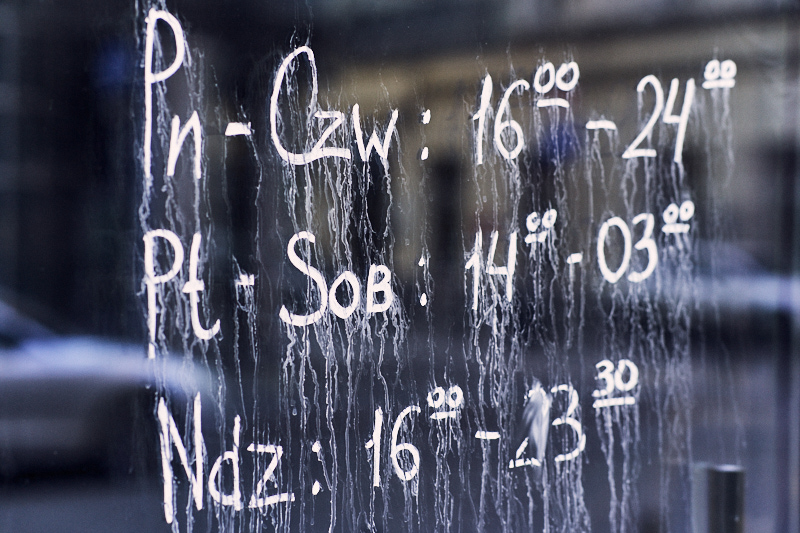 Pn - Czw : 16⁰⁰ - 24⁰⁰
Pt - Sob : 14⁰⁰ - 03⁰⁰
Ndz : 16⁰⁰ - 23³⁰